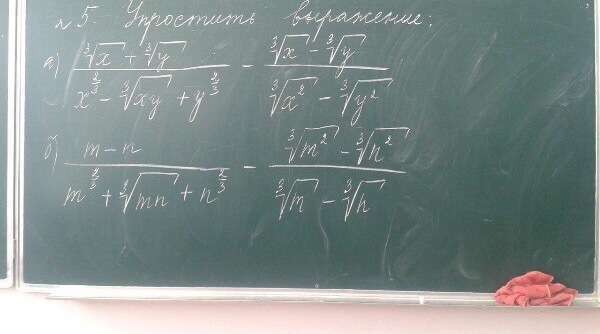 №5. Упростить выражение:
а) (∛x + ∛y)/(x^(2/3) − ∛(xy) + y^(2/3)) − (∛x − ∛y)/(∛x² − ∛y²)
б) (m − n)/(m^(2/3) + ∛(mn) + n^(2/3)) − (∛m² − ∛n²)/(∛m − ∛n)